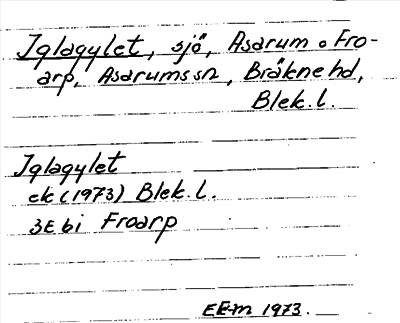 Iglagylet, sjö, Asarum o Fro-
arp, Asarums sn, Bräkne hd,
Blek. l.
Iglagylet
ek (1973) Blek. l.
3E bi Froarp
EE-m 1973.